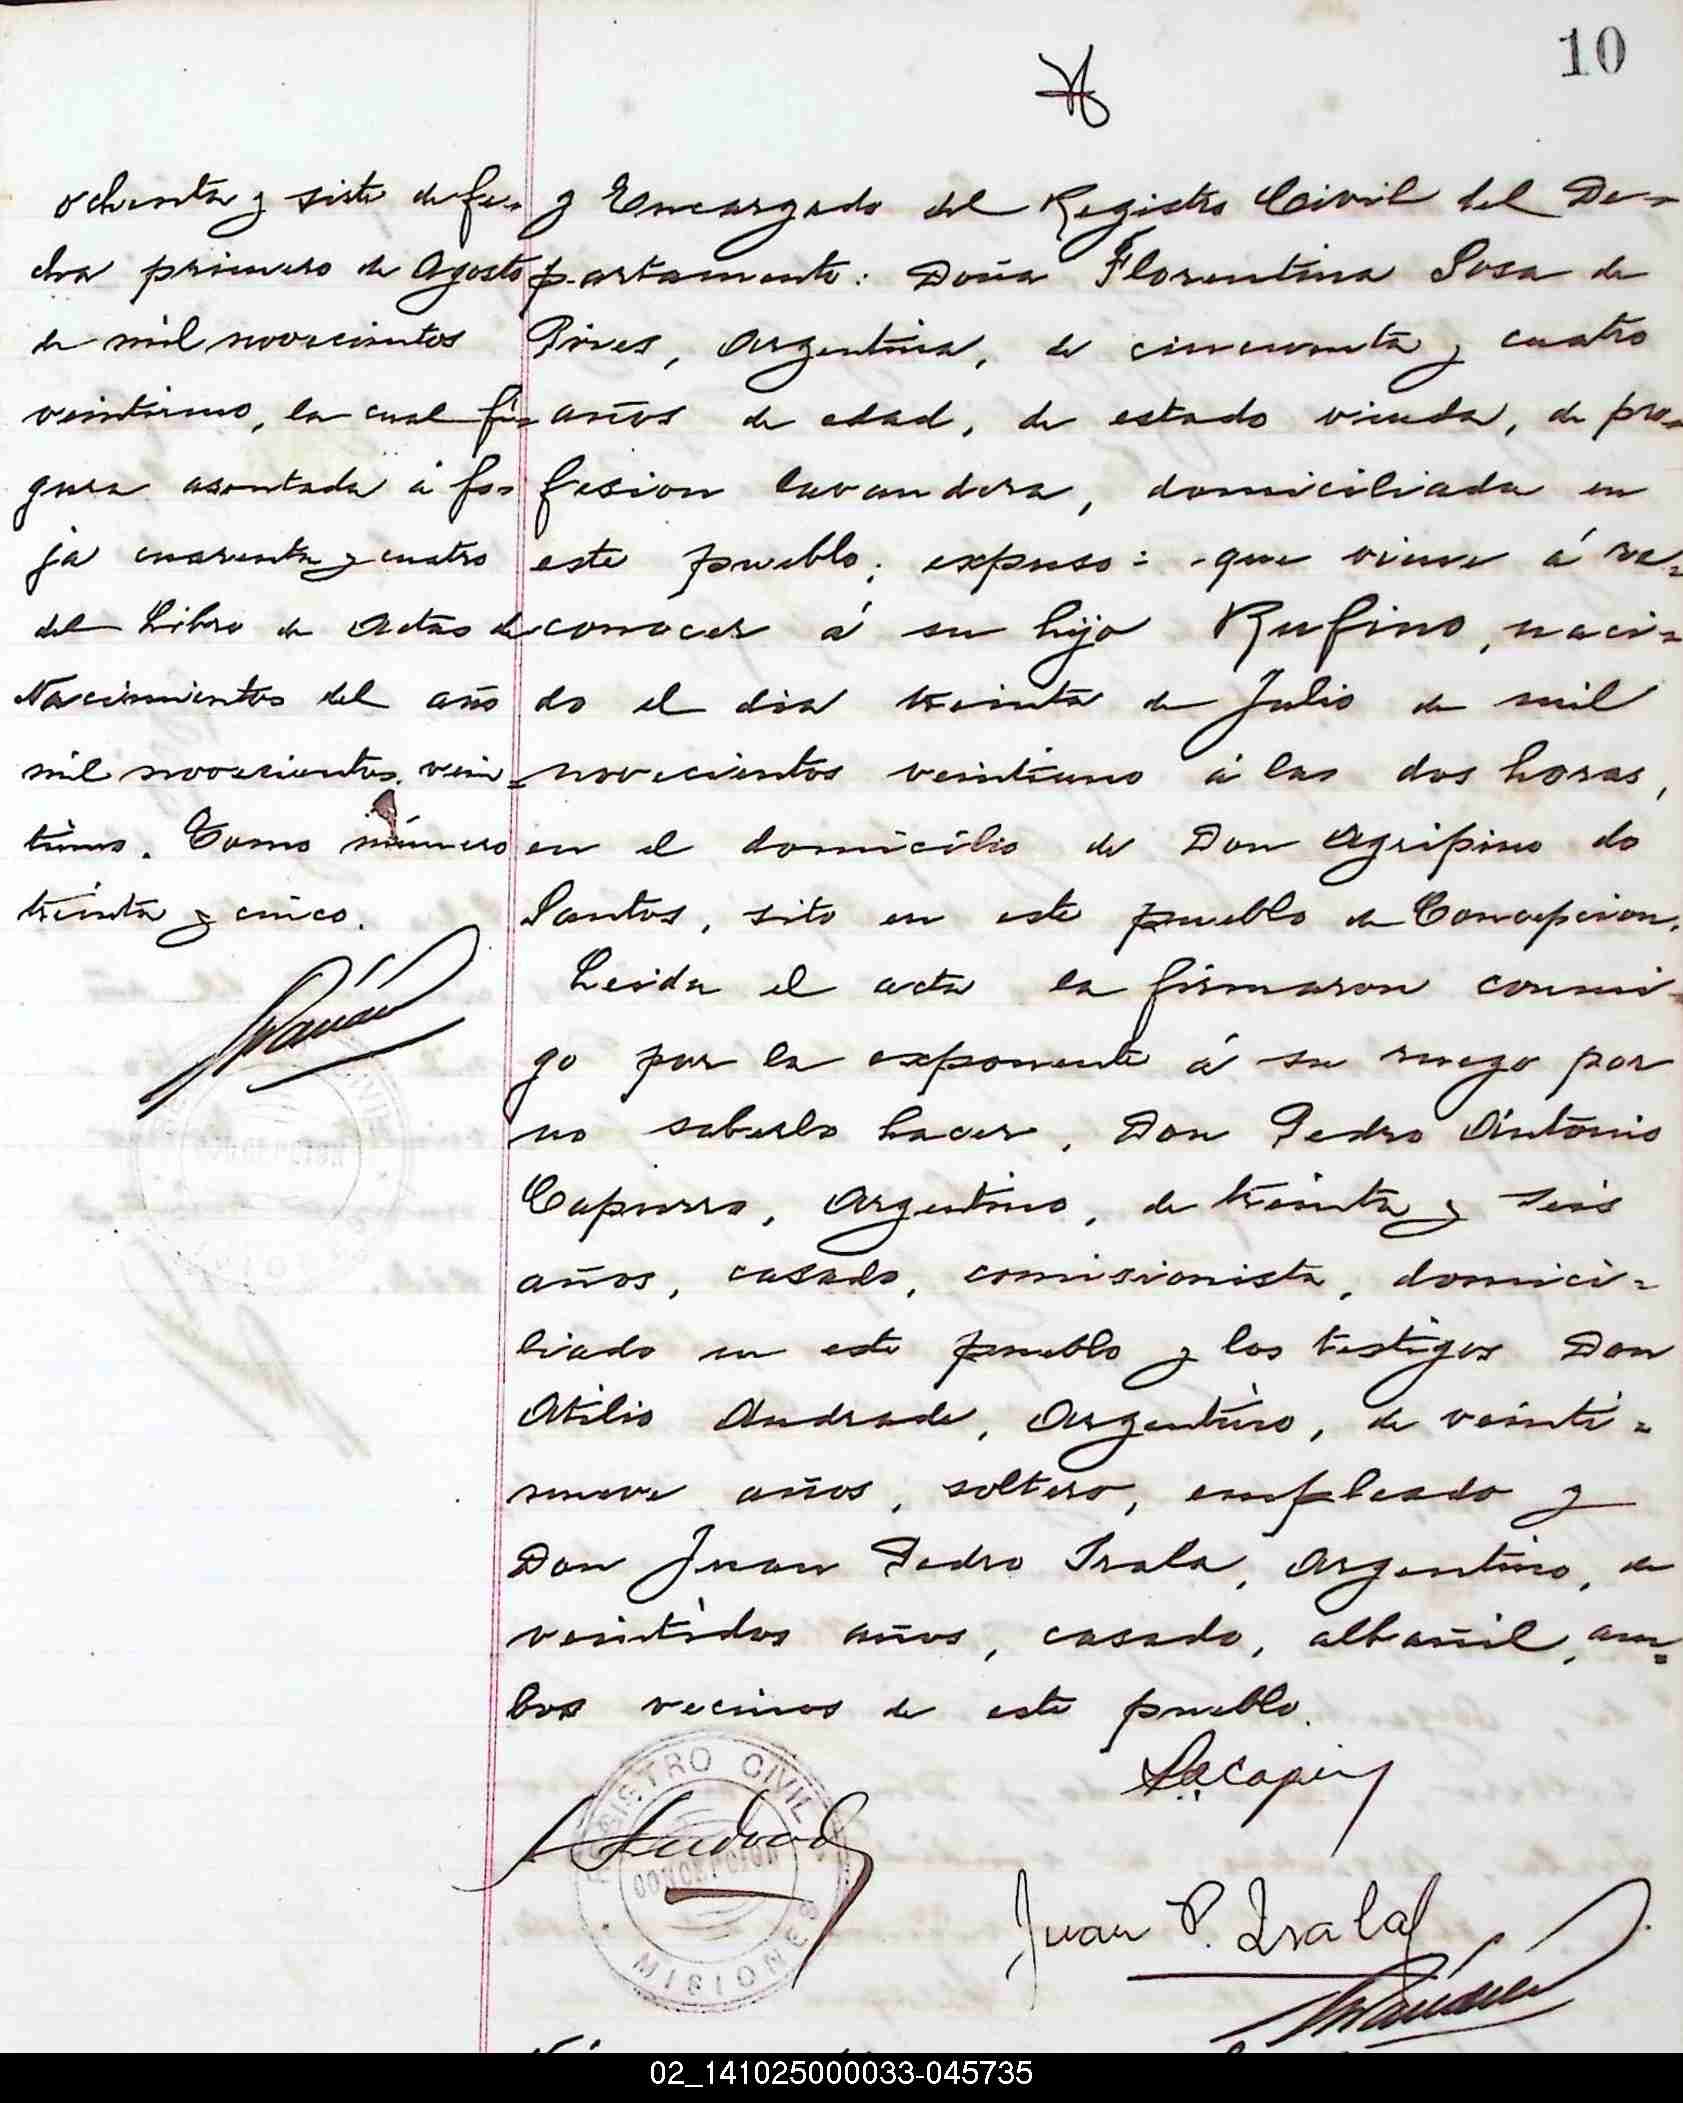 10
ochenta y siete de fe-
cha primero de Agosto
de mil novecientos
veintiuno, la cual fi-
gura asentada á fo-
ja cuarenta y cuatro
del Libro de Actas de
Nacimientos del año
mil novecientos vein-
tiuno. Tomo número
treinta y cinco.
y Encargado del Registro Civil del De-
partamento: Doña Florentina Sosa de
Pires, Argentina, de cincuenta y cuatro
años de edad, de estado viuda, de pro-
fesion lavandera, domiciliada en
este pueblo; expuso: que viene á re-
conocer á su hijo Rufino, naci-
do el dia treinta de Julio de mil
novecientos veintiuno á las dos horas,
en el domicilio de Don Agripino do
Santos, sito en este pueblo de Concepcion.
Leida el acta la firmaron conmi-
go por la exponente á su ruego por
no saberlo hacer, Don Pedro António
Capurro, Argentino, de treinta y seis
años, casado, comisionista, domici-
liado en este pueblo y los testigos Don
Atilio Andrade, Argentino, de veinti-
nueve años, soltero, empleado y
Don Juan Pedro Irala, Argentino, de
veintidos años, casado, albañil, am-
bos vecinos de este pueblo.
REGISTRO CIVIL
CONCEPCION
MISIONES
Juan P. Irala
02_141025000033-045735